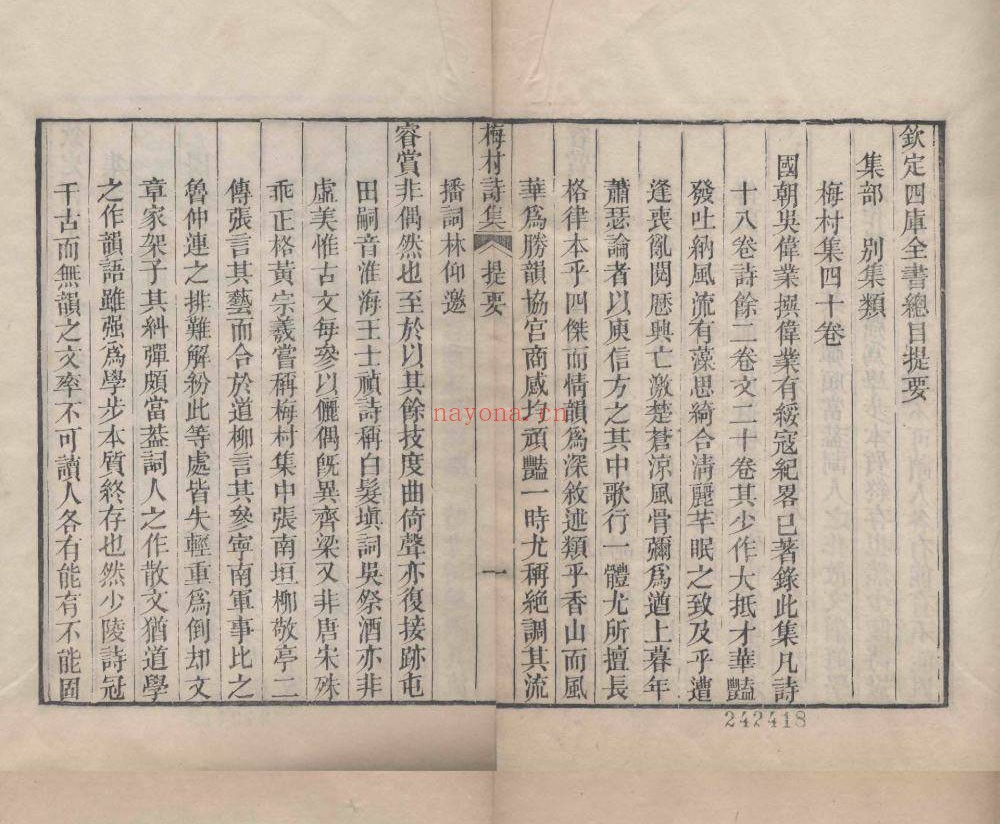 欽定四庫全書總目提要
集部 别集類
梅村集四十卷
國朝吳偉業撰偉業有綏寇紀畧已著錄此集凡詩
十八卷詩餘二卷文二十卷其少作大抵才華豔
發吐納風流有藻思綺合清麗芊眠之致及乎遭
逢喪亂閱歷興亡激楚蒼涼風骨彌爲遒上暮年
蕭瑟論者以庾信方之其中歌行一體尤所擅長
格律本乎四傑而情韻爲深敘述類乎香山而風
華爲勝韻協宮商感均頑豔一時尤稱絕調其流
梅村詩集 提要 一
播詞林仰邀
睿賞非偶然也至於以其餘技度曲倚聲亦復接跡屯
田嗣音淮海王士禎詩稱白髮塡詞吳祭酒亦非
虛美惟古文每參以儷偶旣異齊梁又非唐宋殊
乖正格黃宗羲嘗稱梅村集中張南垣柳敬亭二
傳張言其藝而合於道柳言其參寧南軍事比之
魯仲連之排難解紛此等處皆失輕重爲倒却文
章家架子其糾彈頗當葢詞人之作散文猶道學
之作韻語雖强爲學步本質終存也然少陵詩冠
千古而無韻之文率不可讀人各有能有不能固
242418
nayona.cn